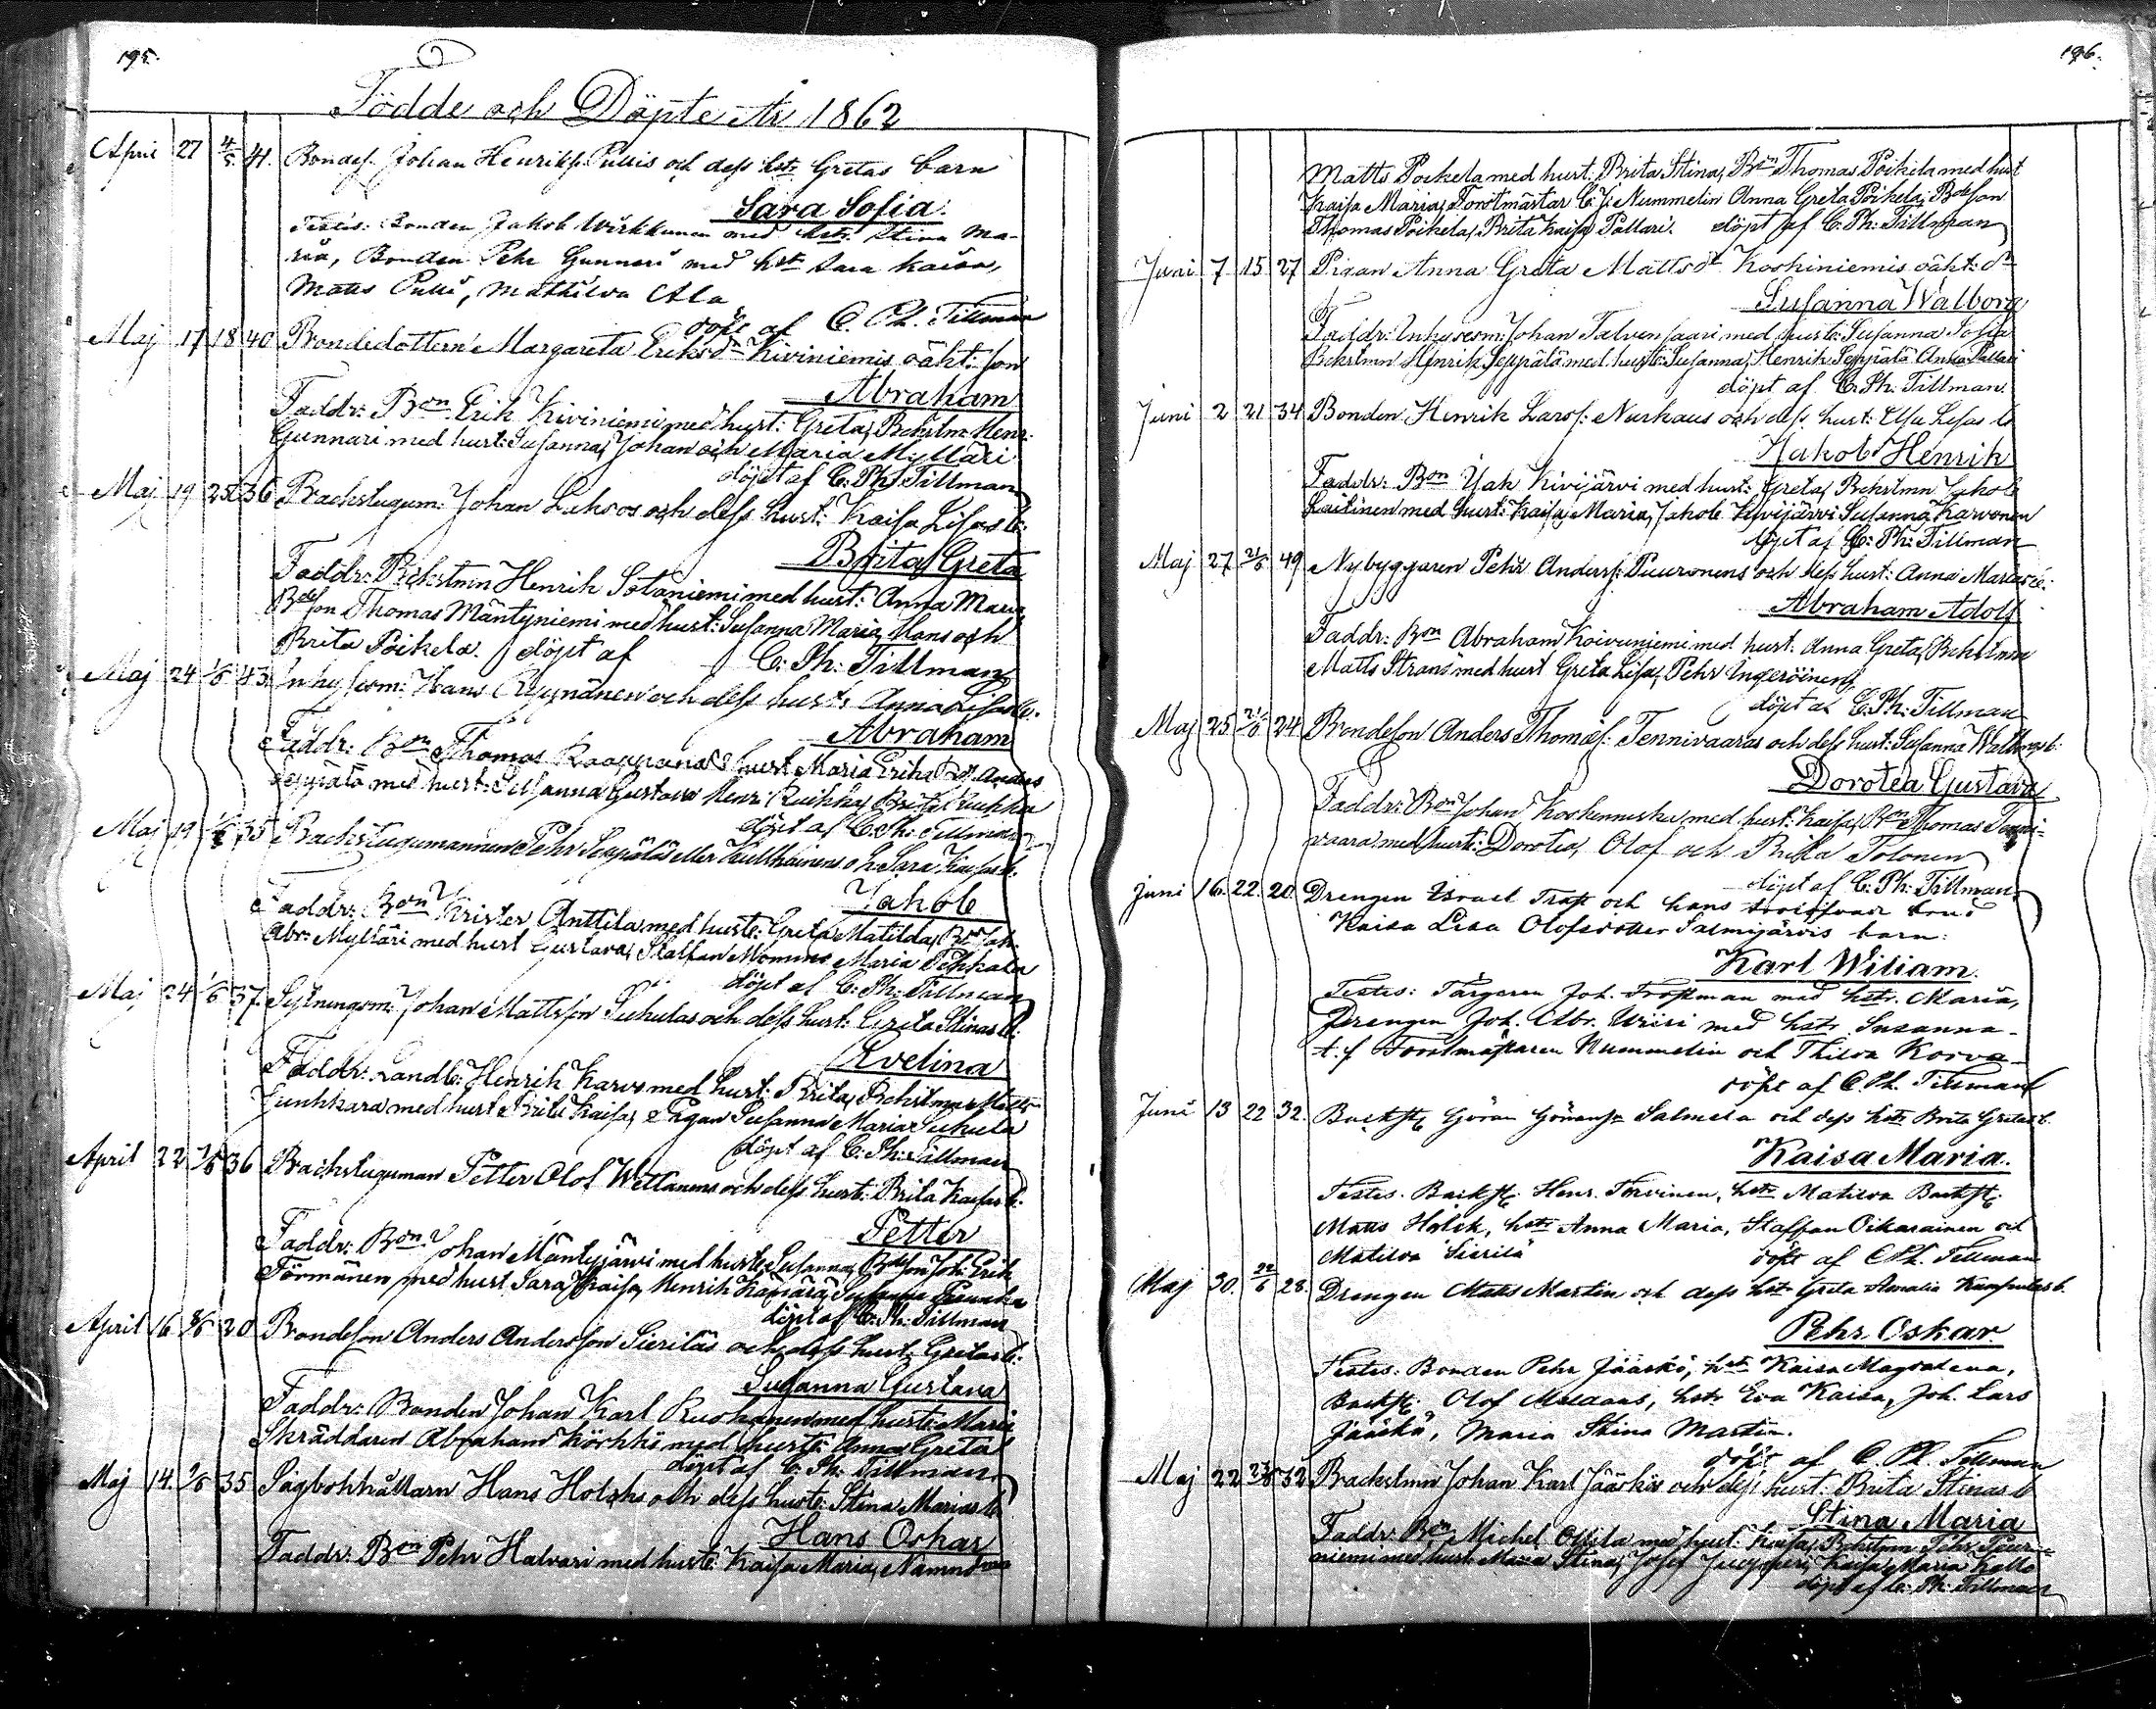 195.
Födde och Döpte År 1862
April 27 4/5 41. Bondes. Johan Henriks. Pullis och dess hstr Gretas barn
Sara Sofia.
Testes: Bonden Jakob Wirkkunen med hstr. Stina Ma-
ria, Bonden Pehr Gunnari med hstr Sara Kaisa,
Matts Pulli, Mathilda Ala
döpt af C. Ph. Tillman
Maj 17 18 40 Bondedottern Margareta Eriksdr Kiviniemis oäkt: son
Abraham
Faddr: Bon Erik Kiviniemi med hust: Greta, Bckstm Henr.
Gunnari med hust: Susanna, Johan och Maria Mylläri
döpt af C. Ph. Tillman
Maj 19 25 36 Backstugum: Johan Lahsos och dess hust: Kaisa Lisas b:
Brita Greta
Faddr: Bckstmn Henrik Sotaniemi med hust: Anna Maria
Bdeson Thomas Mäntyniemi med hust: Susanna Maria, Hans och
Brita Poikela. döpt af C. Ph: Tillman
Maj 24 1/6 43. Inhyserm: Hans Ryynänen och dess hust: Anna Lisas b.
Abraham
Faddr: Bon Thomas Kaappana hust Maria Erika, Anders
Seppälä med hust: Susanna Gustava Henr. Ruikka, Brita Ruikka
döpt af C. Ph: Tillman
Maj 19 1/6 35 Backstugumannen Pehr Seppäläs eller Kulthainens o h Sara Kaisas b.
Jakob
Faddr: Bon Krister Anttila med hustr: Greta Matilda, Bon Joh.
Abr. Mylläri med hust Gustava, Staffan Mommo Maria Pehkala
döpt af C. Ph: Tillman
Maj 24 1/6 37. Sytningsm: Johan Mattsson Suhulas och dess hust: Greta Stinas b:
Evelina
Faddr: Landb: Henrik Karvo med hust: Brita, Bckstmn Matts
Junkkara med hust Brita Kaisa, Pigan Susanna Maria Suhula
döpt af C: Ph: Tillman
April 22 7/6 36 Backstuguman Petter Olof Wettanens och dess hust: Brita Kaisas b.
Petter
Faddr: Bon Johan Mäntyjärvi med hust: Susanna, Bdeson Joh: Erik
Törmänen med hust Sara Kaisa, Henrik Kämärä, Susanna
döpt af C: Ph: Tillman
April 16 8/6 20 Bondeson Anders Andersson Sieriläs och dess hust: Gretas b:
Susanna Gustava
Faddr: Bonden Johan Karl Ruokanen med hustr: Maria
Skräddaren Abraham Körkkö med hustr: Anna Greta
döpt af C: Ph: Tillman
Maj 14. 9/6 35 Sågbokhållarn Hans Holcks och dess hustr: Stina Marias b.
Hans Oskar
Faddr: Bon Pehr Halvari med hustr: Kaisa Maria, Nämndm
196.
Matts Poikela med hust: Brita Stina, Bon Thomas Poikela med hust
Kaisa Maria, Forstmästar C: J: Nummelin Anna Greta Poikela, Bdeson
Thomas Poikela, Brita Kaisa Pallari. döpt af C: Ph: Tillman
Juni 7 15 27 Pigan Anna Greta Mattsdr Koskiniemis oäkt: dr
Susanna Walborg
Faddr: Inhysesm: Johan Talvensaari med hustr: Susanna Sofia
Bckstmn Henrik Seppälä med hustr: Susanna, Henrik Seppälä Anna Pallari
döpt af C: Ph: Tillman.
Juni 2 21 34 Bonden Henrik Larss: Nurkans och dess hust: Elsa Lisas b
Jakob Henrik
Faddr: Bon Isak Kivijärvi med hust: Greta, Bckstmn Jakob
Laitinen med hust: Kaisa Maria, Jakob Kivijärvi Susanna Karvonen
döpt af C: Ph: Tillman
Maj 27 21/6 49 Nybyggaren Pehr Anderss: Puuronens och dess hust: Anna Marias b:
Abraham Adolf
Faddr: Bon Abraham Koivuniemi med hust: Anna Greta, Bckstmn
Matts Strans med hust Greta Lisa, Pehr Ingeröinen
döpt af C: Ph: Tillman
Maj 25 21/6 24 Bondeson Anders Thomæs: Tennivaaras och dess hust: Susanna Walborgs b:
Dorotea Gustava
Faddr: Bon Johan Koskenniska med hust: Kaisa, Bon Thomas Tenni-
vaara med hustr: Dorotea, Olof och Brita Tolonen
döpt af C: Ph: Tillman
Juni 16. 22. 20. Drengen Israel Trast och hans trolofvade brud
Kaisa Lisa Olofsdotter Salmijärvis barn:
Karl Wiliam.
Testes: Färgaren Joh. Trostman med hstr. Maria,
Drengen Joh. Abr. Wiiri med hstr Susanna.
t. f Forstmästaren Nummelin och Thilda Korva
döpt af C. Ph. Tillman
Juni 13 22 32. Backst: Göran Göranss Salmela och dess hstr Brita Gretas b.
Kaisa Maria.
Testes: Backst: Henr. Torvinen, hstr Matilda Backst:
Matts Holck, hstr Anna Maria, Staffan Oikarainen och
Matilda Sierilä döpt af C Ph. Tillman
Maj 30. 22/6 28. Drengen Matts Martin och dess hstr Greta Amalia b.
Pehr Oskar
Testes: Bonden Pehr Jääskö, hstr Kaisa Magdalena,
Backst: Olof Muldans, hstr Eva Kaisa, Joh. Lars
Jääskö, Maria Stina Martin.
döpt af C. Ph. Tillman
Maj 22 23/6 32 Backstmn Johan Karl Jääskös och dess hust: Brita Stinas b
Stina Maria
Faddr: Bon Michel Ollila med hust: Kaisa, Bckstmn Pehr
niemi med hust Maria Stina, Josef Juopperi, Kaisa Maria Kallo
döpt af C: Ph: Tillman